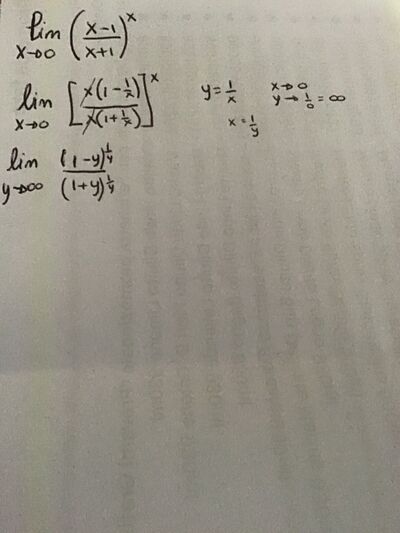 lim x→0 ((x-1)/(x+1))^x
lim x→0 [x(1-1/x)/x(1+1/x)]^x y=1/x x→0
y→1/0=∞
x=1/y
lim y→∞ (1-y)^(1/y)/(1+y)^(1/y)